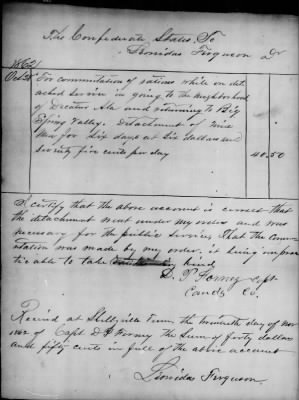 The Confederate States, To
Leonidas Ferguson Dr
1862
Oct 28 For commutation of rations while on det
ached service in going to the neighborhood
of Decatur Ala and returning to Big
Spring Valley. Detachment of nine
men for six days at six dollars and
seventy five cents per day 40.50
I certify that the above account is correct that
the detachment went under my order and was
necessary for the public service, that the commu
tation was made by my order, it being imprac
ticable to take kind
D. P. Forney Capt
Comdg Co.
Recievd at Shelbyville Tenn the twentieth day of Nov
1862 of Capt D P Forney the Sum of forty dollars
and fifty cents in full of the above account
Leonidas Ferguson